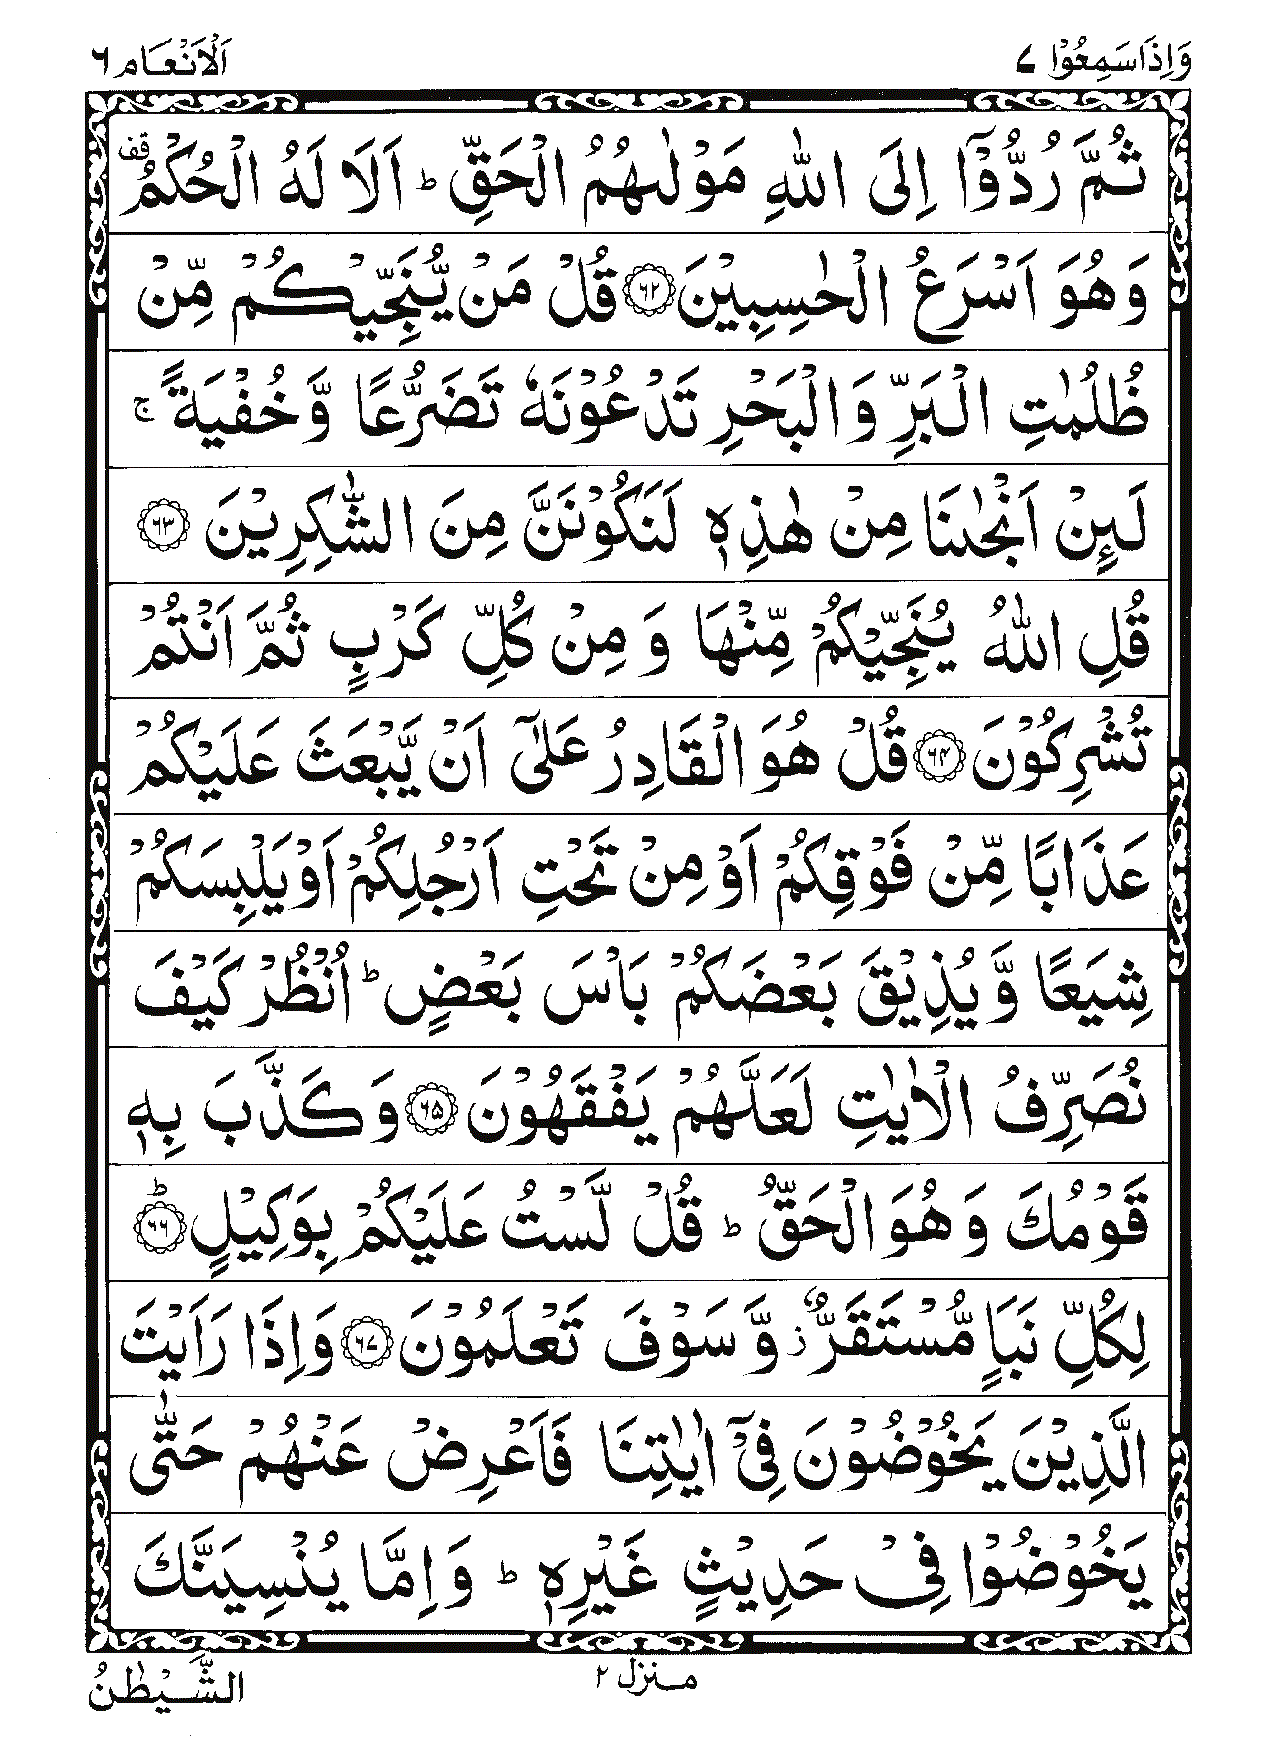 وَاِذَا سَمِعُوْا ٧ اَلْاَنْعَام ٦
ثُمَّ رُدُّوْۤا اِلَى اللّٰهِ مَوْلٰىهُمُ الْحَقِّ ؕ اَلَا لَهُ الْحُكْمُ قف
وَهُوَ اَسْرَعُ الْحٰسِبِيْنَ ﴿۶۲﴾ قُلْ مَنْ يُّنَجِّيْكُمْ مِّنْ
ظُلُمٰتِ الْبَرِّ وَالْبَحْرِ تَدْعُوْنَهٗ تَضَرُّعًا وَّخُفْيَةً ۚ
لَىِٕنْ اَنْجٰىنَا مِنْ هٰذِهٖ لَنَكُوْنَنَّ مِنَ الشّٰكِرِيْنَ ﴿۶۳﴾
قُلِ اللّٰهُ يُنَجِّيْكُمْ مِّنْهَا وَمِنْ كُلِّ كَرْبٍ ثُمَّ اَنْتُمْ
تُشْرِكُوْنَ ﴿۶۴﴾ قُلْ هُوَ الْقَادِرُ عَلٰۤى اَنْ يَّبْعَثَ عَلَيْكُمْ
عَذَابًا مِّنْ فَوْقِكُمْ اَوْ مِنْ تَحْتِ اَرْجُلِكُمْ اَوْ يَلْبِسَكُمْ
شِيَعًا وَّيُذِيْقَ بَعْضَكُمْ بَاْسَ بَعْضٍ ؕ اُنْظُرْ كَيْفَ
نُصَرِّفُ الْاٰيٰتِ لَعَلَّهُمْ يَفْقَهُوْنَ ﴿۶۵﴾ وَكَذَّبَ بِهٖ
قَوْمُكَ وَهُوَ الْحَقُّ ؕ قُلْ لَّسْتُ عَلَيْكُمْ بِوَكِيْلٍ ﴿۶۶﴾ؕ
لِكُلِّ نَبَاٍ مُّسْتَقَرٌّ ؗ وَّسَوْفَ تَعْلَمُوْنَ ﴿۶۷﴾ وَاِذَا رَاَيْتَ
الَّذِيْنَ يَخُوْضُوْنَ فِيْۤ اٰيٰتِنَا فَاَعْرِضْ عَنْهُمْ حَتّٰى
يَخُوْضُوْا فِيْ حَدِيْثٍ غَيْرِهٖ ؕ وَاِمَّا يُنْسِيَنَّكَ
منزل ۲
الشَّيْطٰنُ